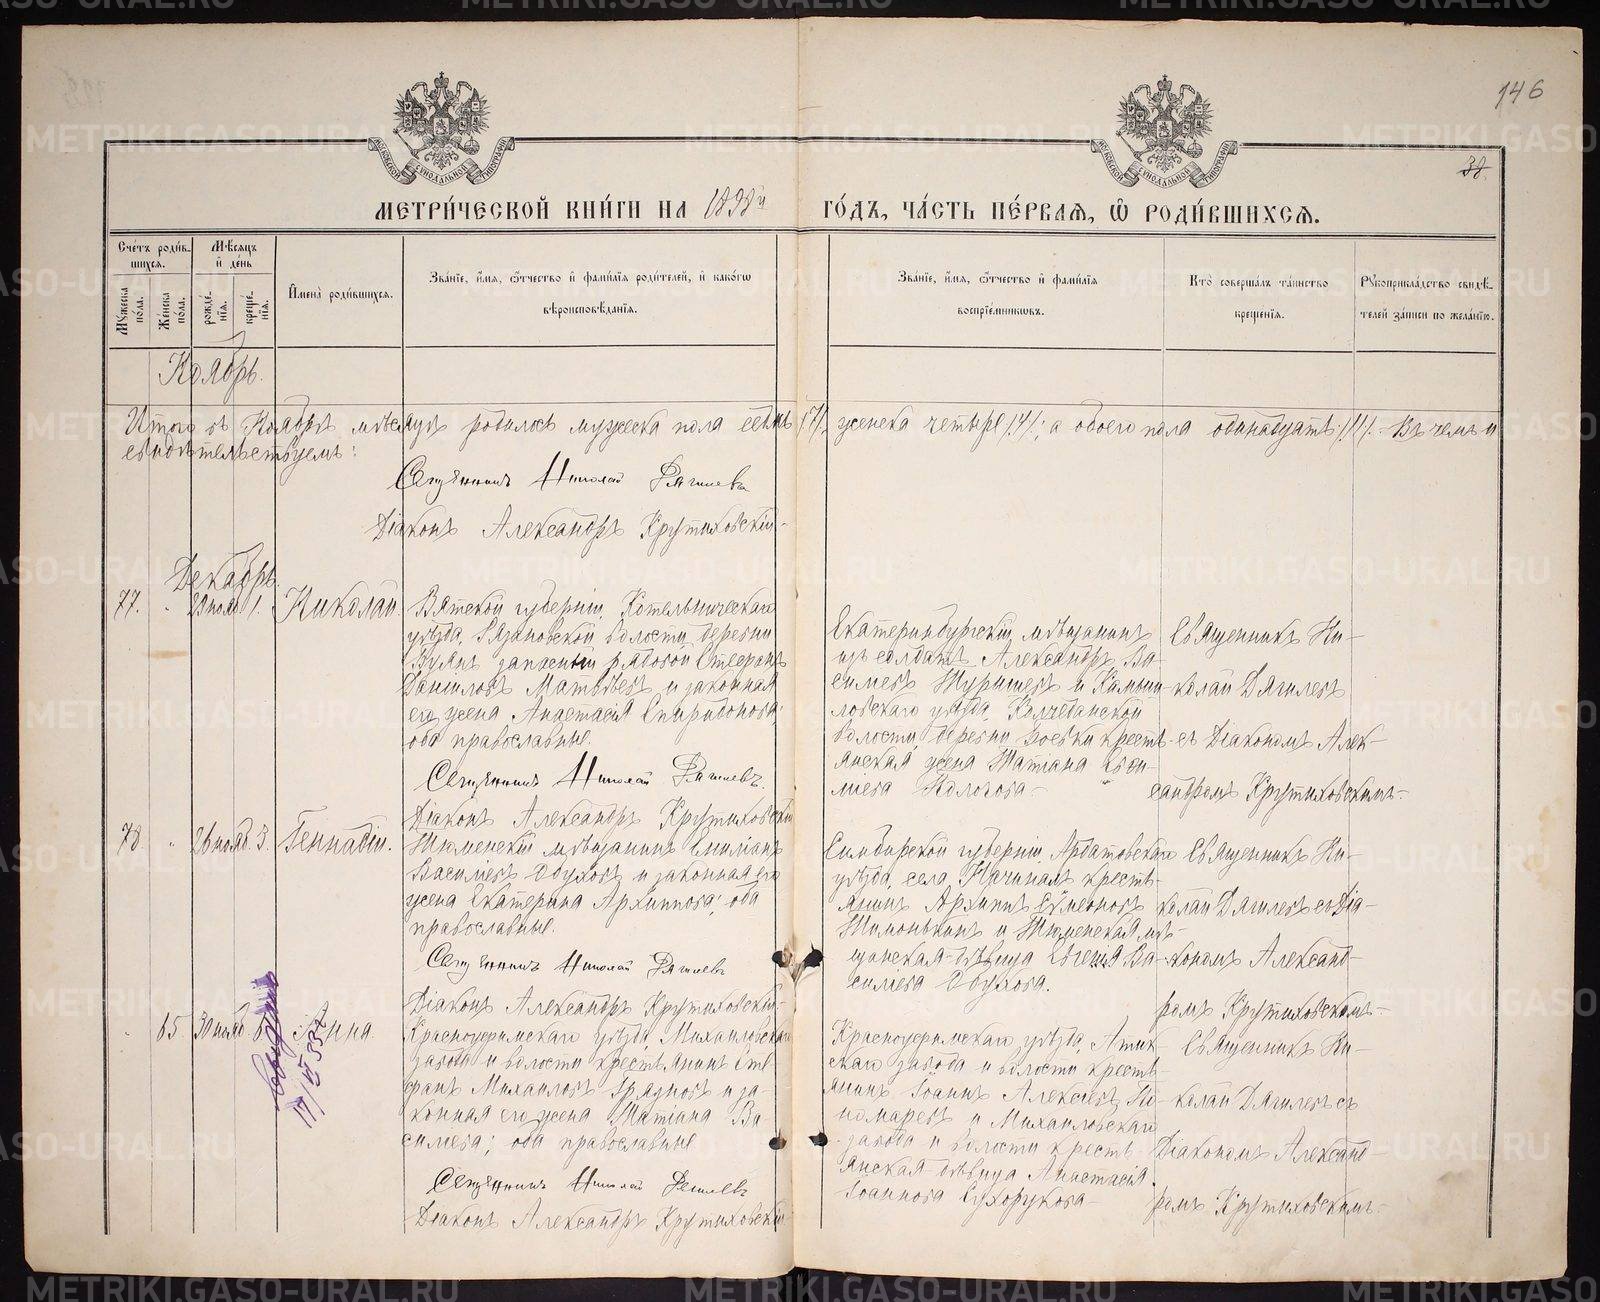 146
38.
МЕТРИ́ЧЕСКОЙ КНИ́ГИ НА 1898й ГО́ДЪ, ЧА́СТЬ ПЕ́РВАЯ, Ѡ РОДИ́ВШИХСЯ.
Сче́тъ роди́вшихся.
Му́жеска по́ла.
Же́нска по́ла.
Мѣ́сяцъ и҆ де́нь
рожде́нїя.
креще́нїя.
И҆мена̀ роди́вшихся.
Зва́нїе, и҆́мя, ѻ҆́тчество и҆ фами́лїя роди́телей, и҆ како́гѡ
вѣроисповѣ́данїя.
Зва́нїе, и҆́мя, ѻ҆́тчество и҆ фами́лїя
воспрїе́мниковъ.
Кто̀ соверша́лъ та́инство
креще́нїя.
Рꙋкоприкла́дство свидѣ́телей за́писи по жела́нїю.
Ноябрь.
Итого въ Ноябрѣ мѣсяцѣ родилось мужеска пола семь /7/, женска четыре /4/; а обоего пола одинадцать /11/. Въ чемъ и
свидѣтельствуемъ:
Священникъ Николай Дягилевъ
Діаконъ Александръ Крутиховскій
Декабрь.
77.
29 нояб.
1.
Николай
Вятской губерніи, Котельническаго
уѣзда, волости, деревни
запасный рядовой Стефанъ
Даніиловъ Матвѣевъ и законная
его жена Анастасія Спиридонова;
оба православные.
Священникъ Николай Дягилевъ.
Діаконъ Александръ Крутиховскій
Екатеринбургскій мѣщанинъ
изъ солдатъ Александръ Ва-
сильевъ и Камыш-
ловскаго уѣзда,
волости, деревни кресть-
янская жена Татіана
Священникъ Ни-
колай Дягилевъ
съ Діакономъ Алек-
сандромъ Крутиховскимъ.
78.
26 нояб.
3.
Геннадій.
Тюменскій мѣщанинъ Емиліанъ
Васильевъ Обуховъ и законная его
жена Екатерина Архиппова; оба
православные.
Священникъ Николай Дягилевъ
Діаконъ Александръ Крутиховскій
Симбирской губерніи, Ардатовскаго
уѣзда, села кресть-
янинъ Архипъ Симеоновъ
и Тюменская мѣ-
щанская дѣвица Евгенія Ва-
сильева Обухова.
Священникъ Ни-
колай Дягилевъ съ Діа-
кономъ Александ-
ромъ Крутиховскимъ.
65
30 нояб.
6
Анна.
17/III 53г
Красноуфимскаго уѣзда, Михайловскаго
завода и волости крестьянинъ Сте-
фанъ Михаиловъ Грязновъ и за-
конная его жена Татіана Ва-
сильева; оба православные
Священникъ Николай Дягилевъ
Діаконъ Александръ Крутиховскій
Красноуфимскаго уѣзда,
скаго завода и волости кресть-
янинъ Іоаннъ Алексѣевъ По-
номаревъ и Михайловскаго
завода и волости кресть-
янская дѣвица Анастасія
Іоаннова Сухорукова
Священникъ Ни-
колай Дягилевъ съ
Діакономъ Александ-
ромъ Крутиховскимъ.
METRIKI.GASO-URAL.RU